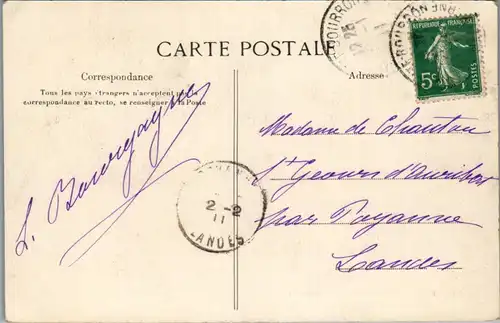 CARTE POSTALE
Correspondance
Tous les pays étrangers n'acceptent pas la
correspondance au recto, se renseigner à la Poste
Adresse
REPUBLIQUE FRANÇAISE
5c
POSTES
Madame de Chanton
St Geours d'Auribat
par Poyanne
Landes
L. Bourgayne
2-2
11
LANDES